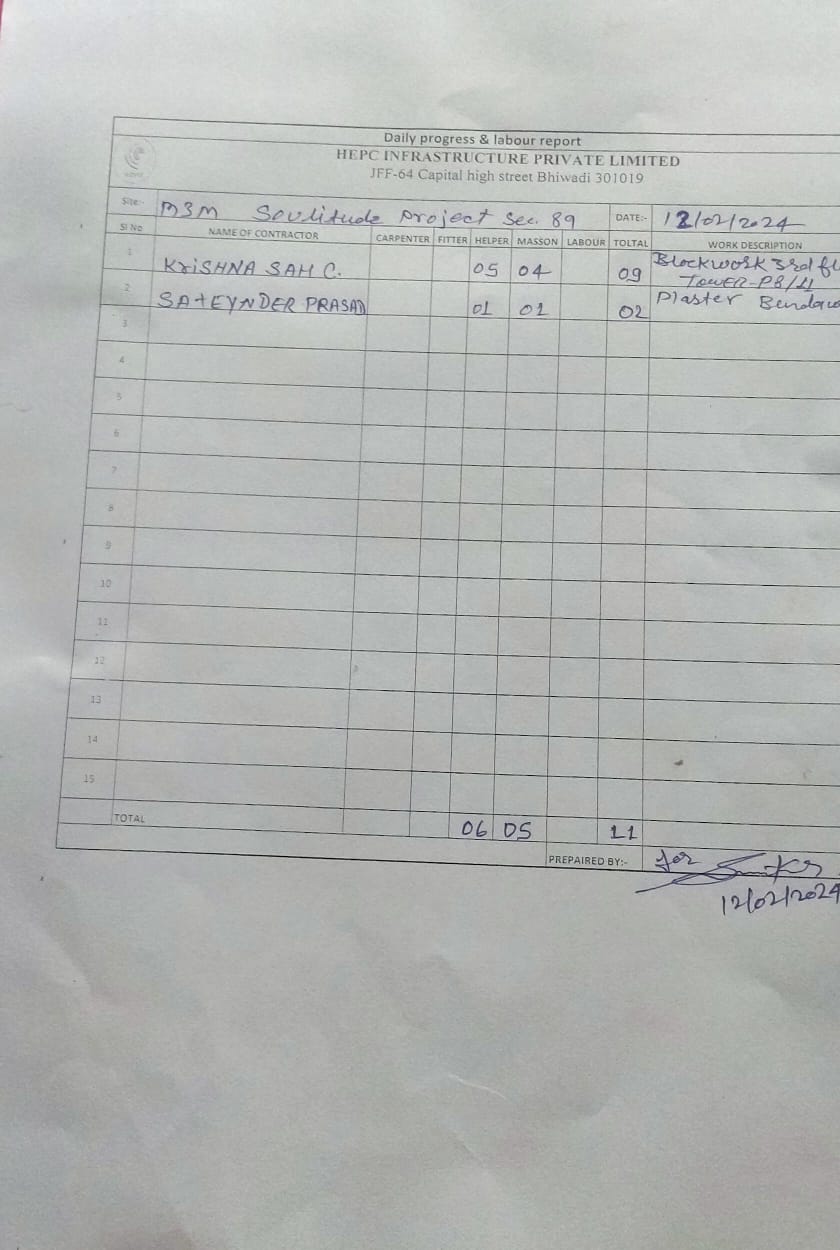 Daily progress & labour report
HEPC INFRASTRUCTURE PRIVATE LIMITED
JFF-64 Capital high street Bhiwadi 301019
Site:- M3M Soulitude project Sec. 89 DATE:- 12/02/2024
SI No NAME OF CONTRACTOR CARPENTER FITTER HELPER MASSON LABOUR TOLTAL WORK DESCRIPTION
1 KRISHNA SAH C. 05 04 09 Blockwork 3rd fl
TOWER-P8/11
2 SATEYNDER PRASAD 01 01 02 Plaster
3
4
5
6
7
8
9
10
11
12
13
14
15
TOTAL 06 05 11
PREPAIRED BY:- for
12/02/2024